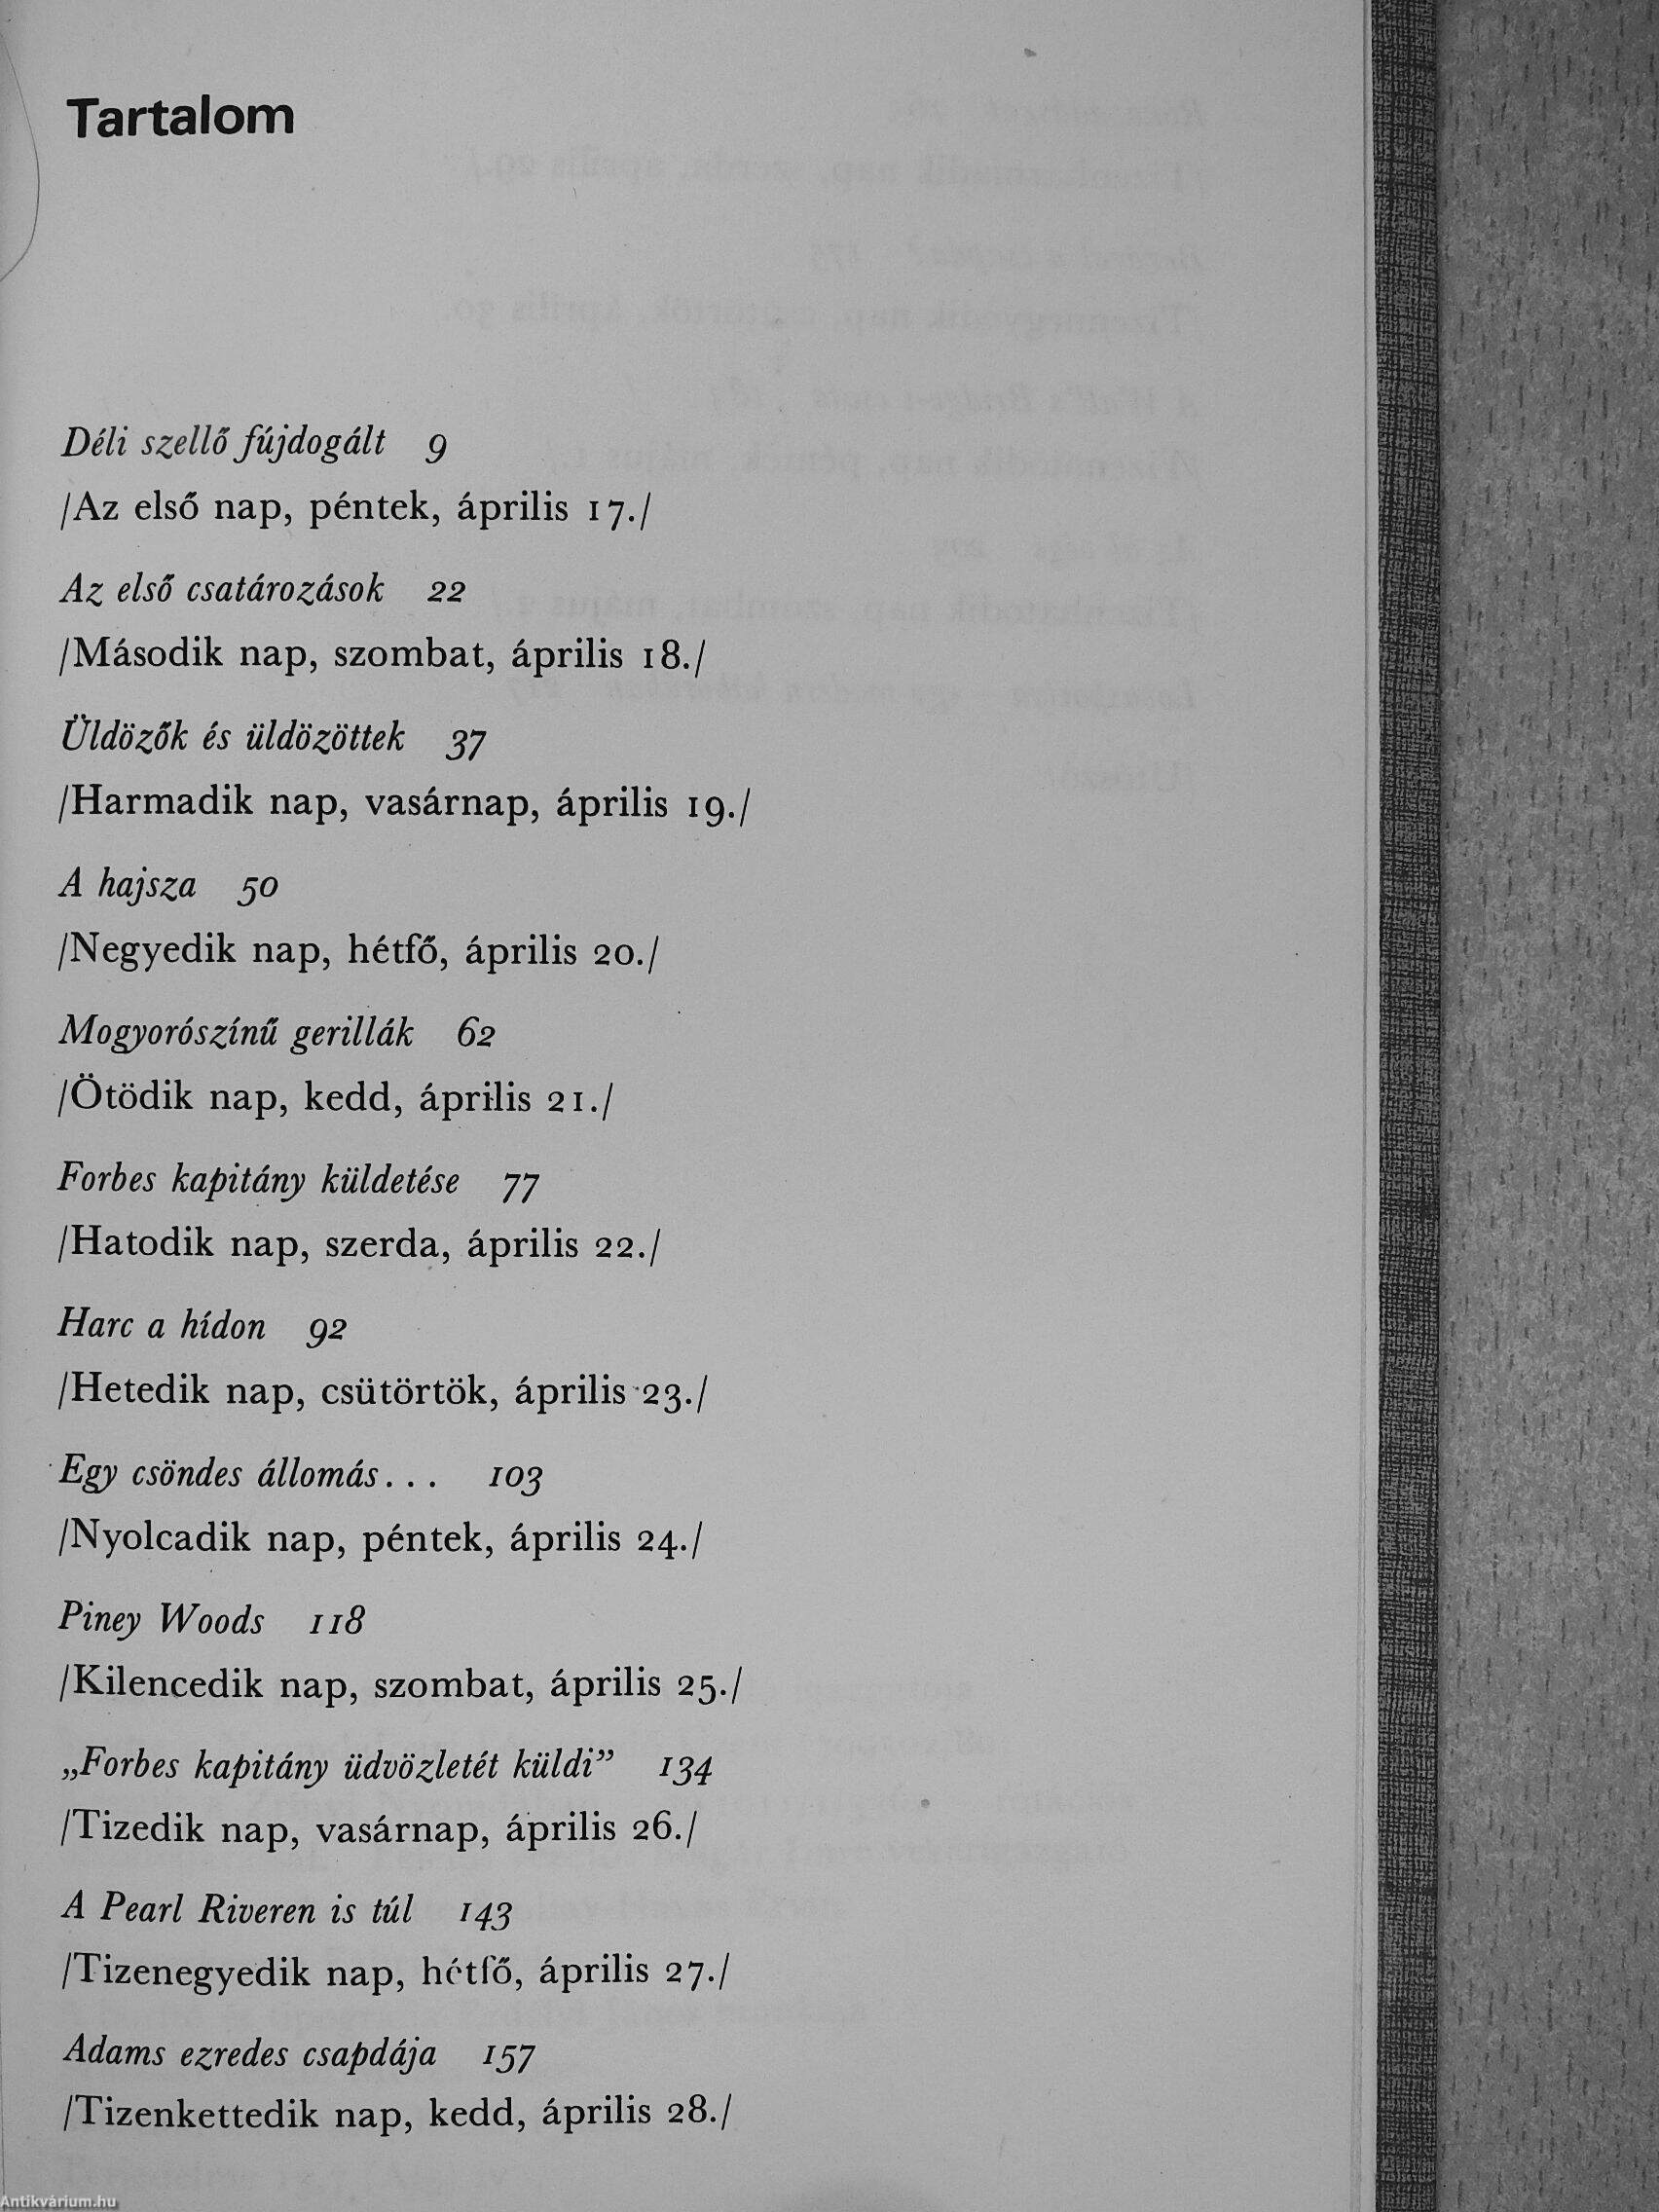 Tartalom
Déli szellő fújdogált 9
/Az első nap, péntek, április 17./
Az első csatározások 22
/Második nap, szombat, április 18./
Üldözők és üldözöttek 37
/Harmadik nap, vasárnap, április 19./
A hajsza 50
/Negyedik nap, hétfő, április 20./
Mogyorószínű gerillák 62
/Ötödik nap, kedd, április 21./
Forbes kapitány küldetése 77
/Hatodik nap, szerda, április 22./
Harc a hídon 92
/Hetedik nap, csütörtök, április 23./
Egy csöndes állomás... 103
/Nyolcadik nap, péntek, április 24./
Piney Woods 118
/Kilencedik nap, szombat, április 25./
„Forbes kapitány üdvözletét küldi” 134
/Tizedik nap, vasárnap, április 26./
A Pearl Riveren is túl 143
/Tizenegyedik nap, hétfő, április 27./
Adams ezredes csapdája 157
/Tizenkettedik nap, kedd, április 28./
Antikvárium.hu